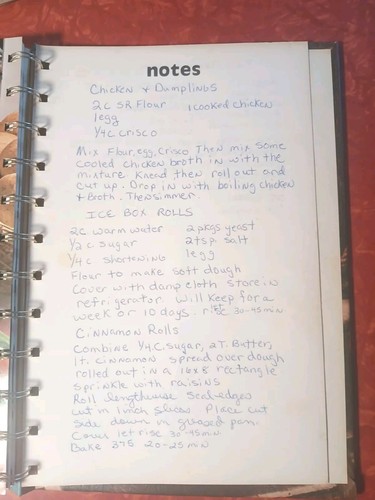 notes
Chicken & Dumplings
2C SR Flour 1 cooked chicken
1egg
1/4 C. Crisco
Mix Flour, egg, Crisco Then mix some
cooled chicken broth in with the
mixture Knead then roll out and
cut up. Drop in with boiling chicken
& Broth. Then simmer.
ICE BOX ROLLS
2C warm water 2 pkgs yeast
1/2 C. sugar 2 tsp salt
1/4 C shortening 1 egg
Flour to make soft dough
Cover with damp cloth store in
refrigerator will keep for a
week or 10 days. rise 30-45 min
Cinnamon Rolls
Combine 1/4 C. sugar, 2T. Butter,
1t. cinnamon spread over dough
rolled out in a 16x8 rectangle
sprinkle with raisins
Roll lengthwise Seal edges
cut in 1 inch slices Place cut
side down in greased pan.
Cover let rise 30-45 min
Bake 375 20-25 min